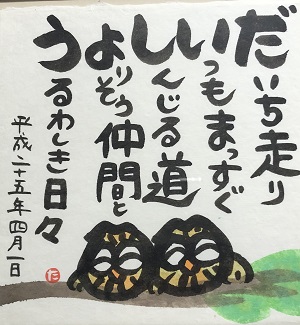 だいち走り
いつもまっすぐ
しんじる道
よりそう仲間と
うるわしき日々
平成二十五年四月一日